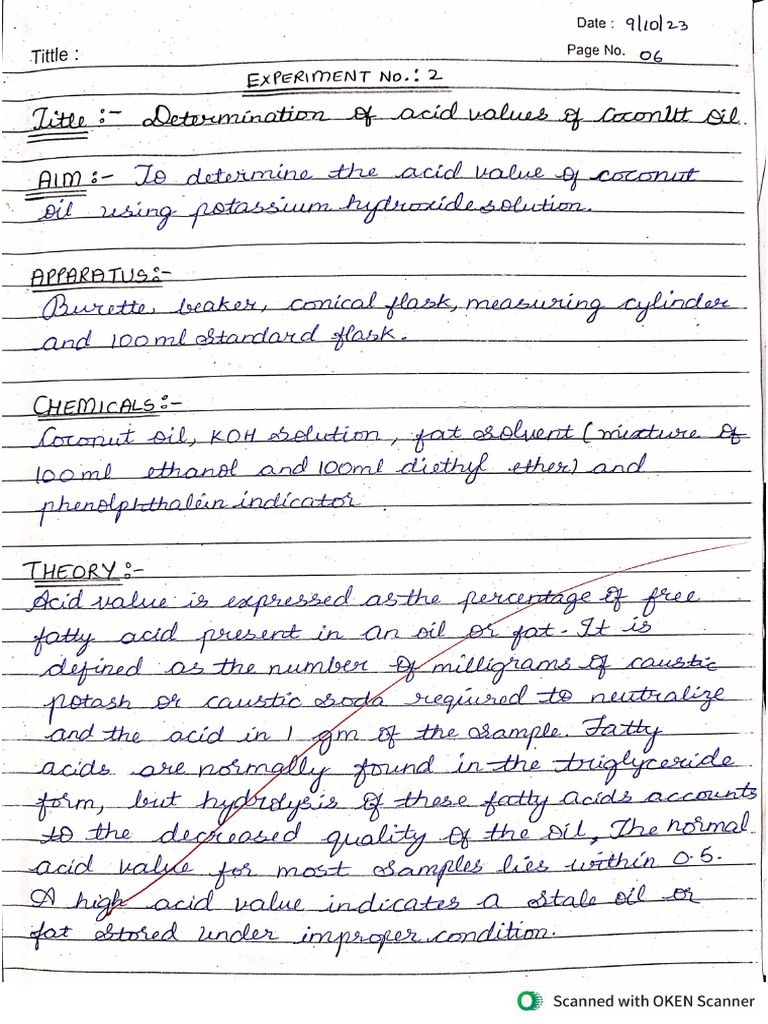 Date : 9/10/23
Tittle :
Page No. 06
EXPERIMENT NO. : 2
Title :- Determination of acid values of Coconut Oil.
AIM :- To determine the acid value of coconut
oil using potassium hydroxide solution.
APPARATUS:-
Burette, beaker, conical flask, measuring cylinder
and 100ml standard flask.
CHEMICALS:-
Coconut oil, KOH solution, fat solvent (mixture of
100ml ethanol and 100ml diethyl ether) and
phenolphthalein indicator
THEORY:-
Acid value is expressed as the percentage of free
fatty acid present in an oil or fat. It is
defined as the number of milligrams of caustic
potash or caustic soda required to neutralize
and the acid in 1 gm of the sample. Fatty
acids are normally found in the triglyceride
form, but hydrolysis of these fatty acids accounts
to the decreased quality of the oil, The normal
acid value for most samples lies within 0.5.
A high acid value indicates a stale oil or
fat stored under improper condition.
Scanned with OKEN Scanner